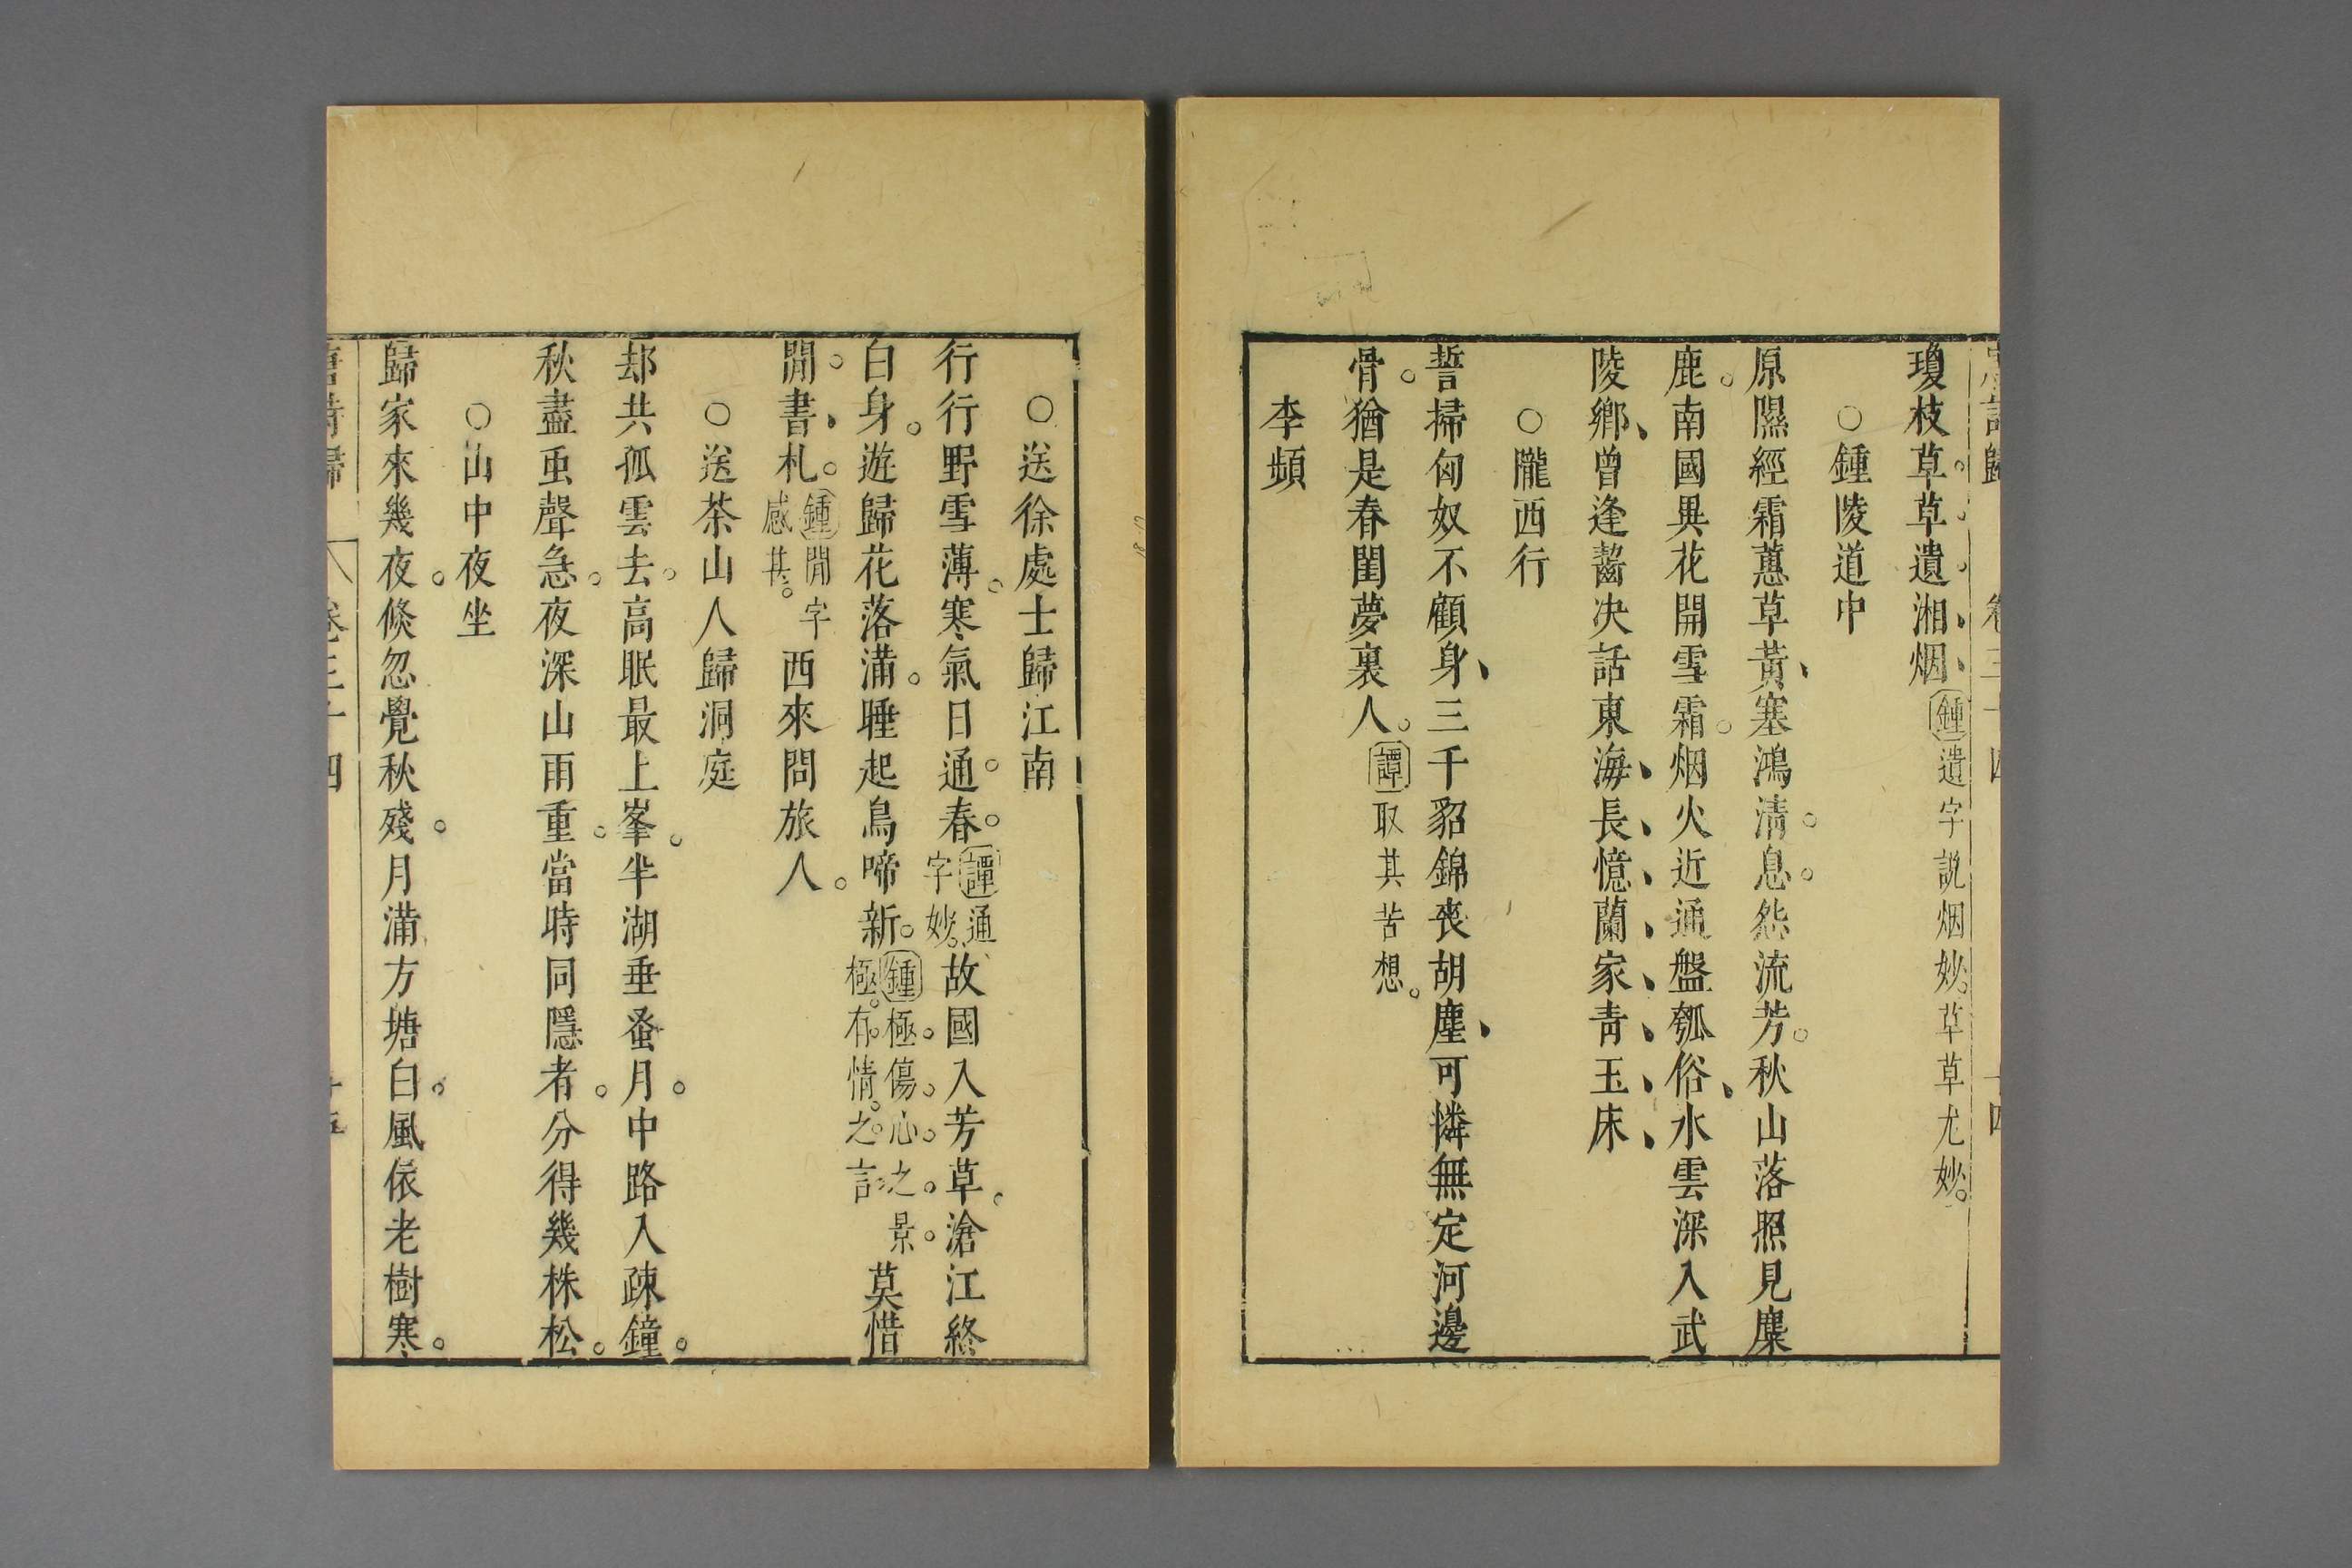 瓊枝草草遺湘烟鍾遺字說烟妙草草尤妙
○鍾陵道中
原隰經霜蕙草黃塞鴻淸息怨流芳秋山落照見麋
鹿南國異花開雪霜烟火近通盤瓠俗水雲深入武
陵鄉曾逢齧决話東海長憶蘭家青玉床
○隴西行
誓掃匈奴不顧身三千貂錦喪胡塵可憐無定河邊
骨猶是春閨夢裏人譚取其苦想
李頻
○送徐處士歸江南
行行野雪薄寒氣日通春譚通字妙故國入芳草滄江終
白身遊歸花落滿睡起鳥啼新鍾極傷心之景極有情之言莫惜
閒書札鍾閒字感甚西來問旅人
○送茶山人歸洞庭
却共孤雲去高眠最上峯半湖垂蚤月中路入疎鐘
秋盡虫聲急夜深山雨重當時同隱者分得幾株松
○山中夜坐
歸家來幾夜倐忽覺秋殘月滿方塘白風依老樹寒
唐詩歸 卷三十四